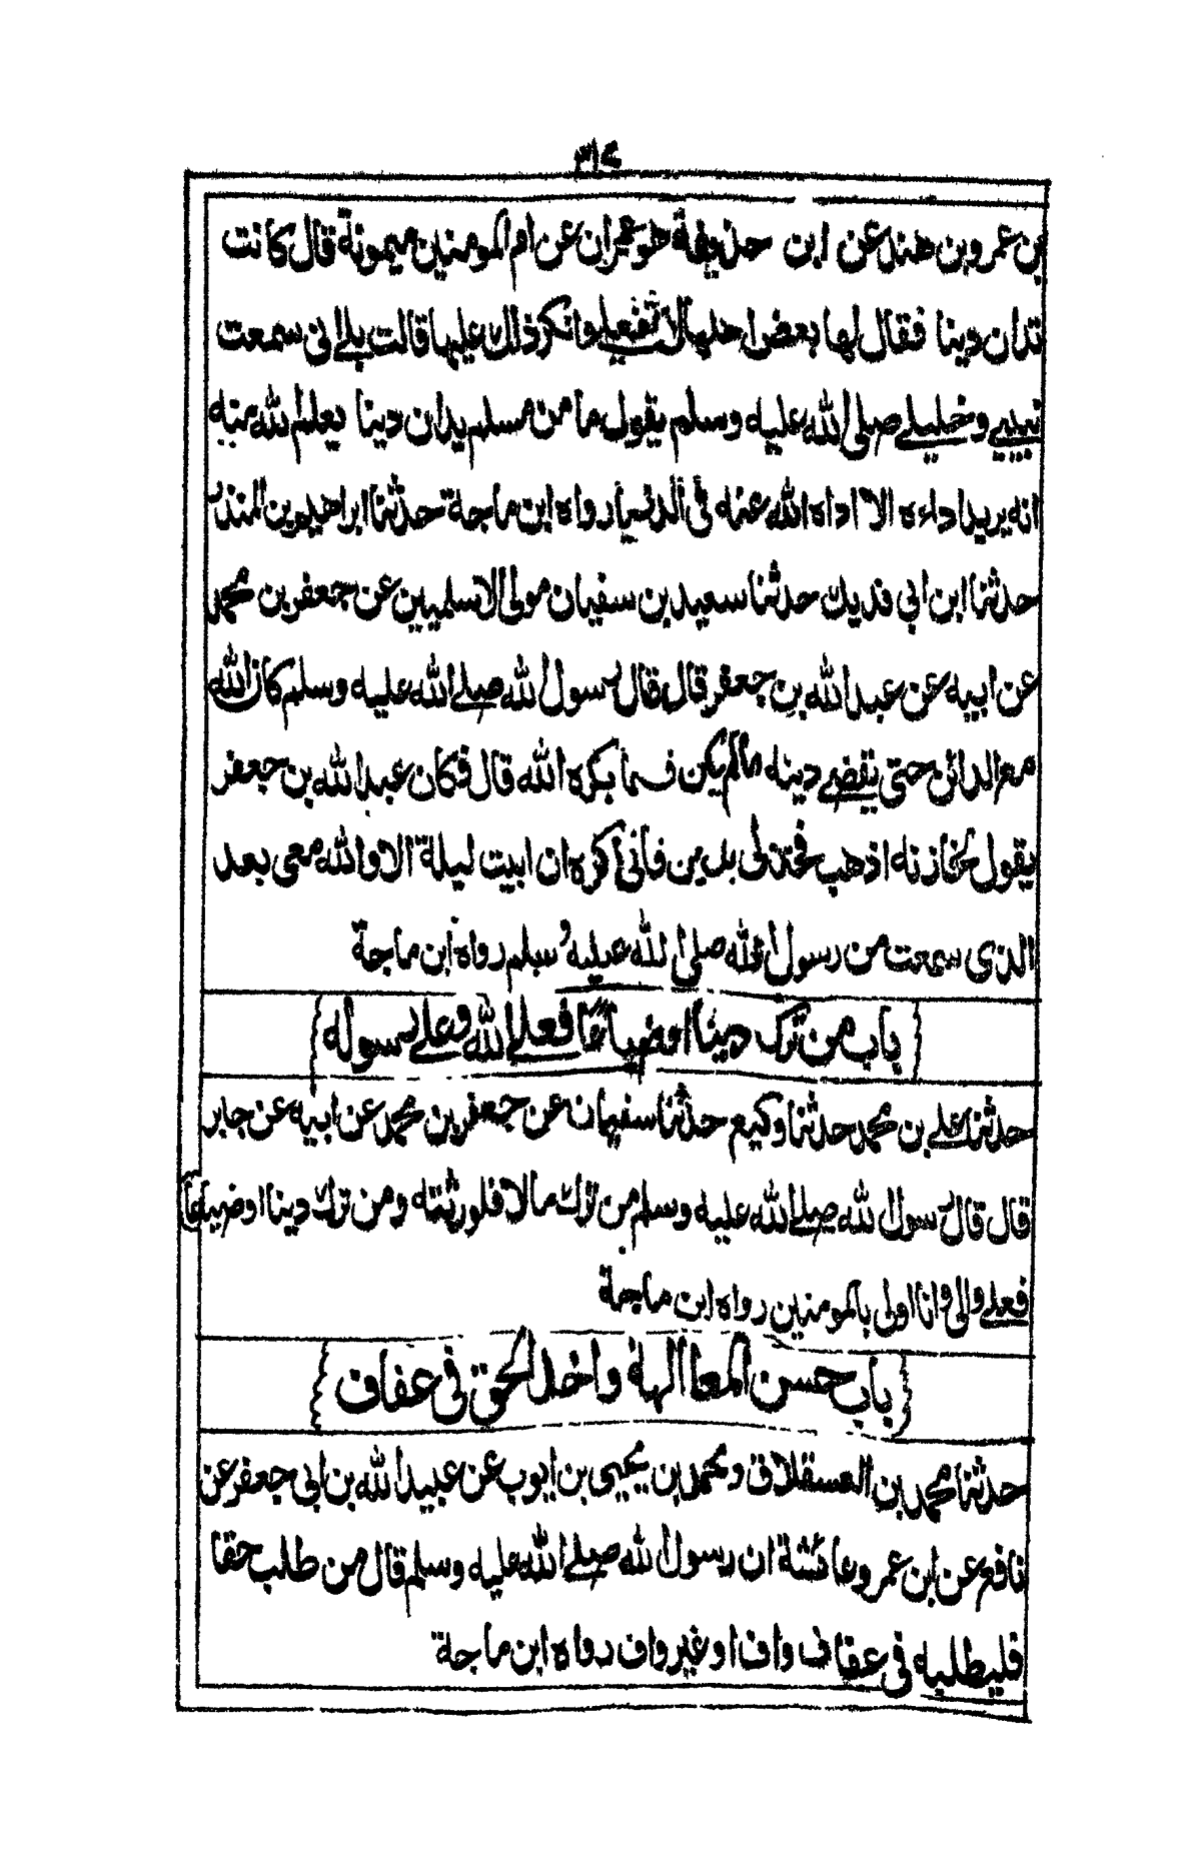 ٣١٤
بن عمرو بن هند عن ابن حذيفة هو عمران عن ام المومنين ميمونة قال كانت
تدان دينا فقال لها بعض اهلها لا تفعلي وانكر ذلك عليها قالت بلى اني سمعت
نبيي وخليلي صلى الله عليه وسلم يقول ما من مسلم يدان دينا يعلم الله منه
انه يريد اداءه الا اداه الله عنه في الدنيا رواه ابن ماجة حدثنا ابراهيم بن المنذر
حدثنا ابن ابي فديك حدثنا سعيد بن سفيان مولى الاسلميين عن جعفر بن محمد
عن ابيه عن عبد الله بن جعفر قال قال رسول الله صلى الله عليه وسلم كان الله
مع الدائن حتى يقضي دينه مالم يكن فيما يكره الله قال فكان عبد الله بن جعفر
يقول لخازنه اذهب فخذ لي بدين فاني اكره ان ابيت ليلة الا والله معي بعد
الذي سمعت من رسول الله صلى الله عليه وسلم رواه ابن ماجة
باب من ترك دينا او ضياعا فعلى الله وعلى رسوله
حدثنا علي بن محمد حدثنا وكيع حدثنا سفيان عن جعفر بن محمد عن ابيه عن جابر
قال قال رسول الله صلى الله عليه وسلم من ترك مالا فلورثته ومن ترك دينا او ضياعا
فعلي والي وانا اولى بالمومنين رواه ابن ماجة
باب حسن المطالبة واخذ الحق في عفاف
حدثنا محمد بن العسقلاني ومحمد بن يحيى بن ايوب عن عبيد الله بن ابي جعفر عن
نافع عن ابن عمر وعائشة ان رسول الله صلى الله عليه وسلم قال من طالب حقا
فليطلبه في عفاف واف او غير واف رواه ابن ماجة